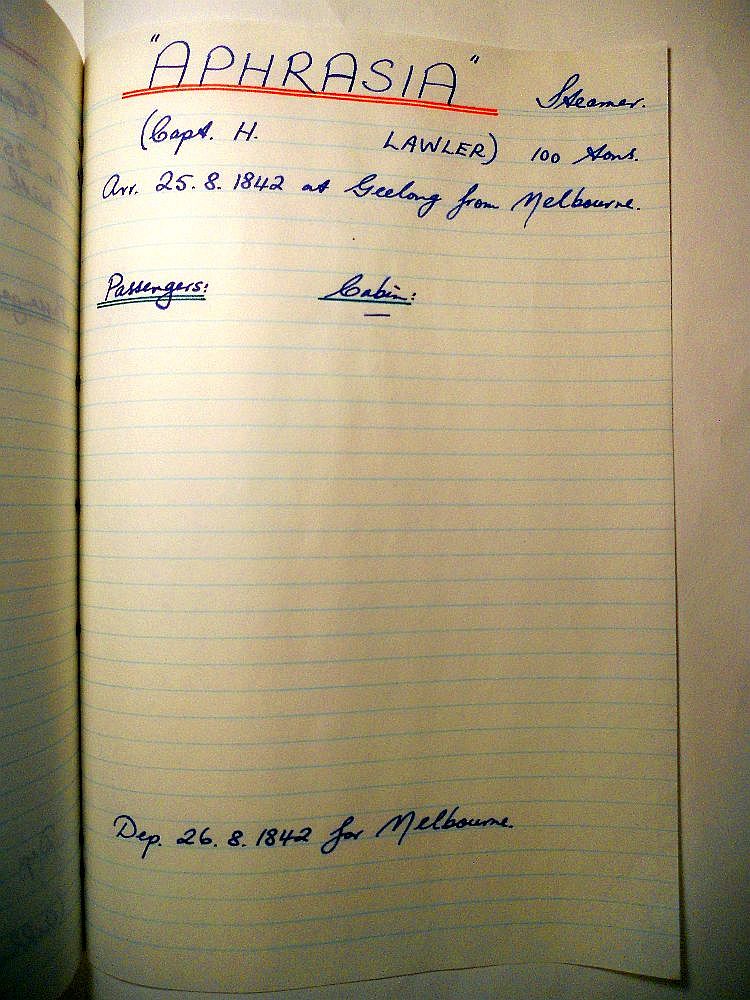 "APHRASIA" Steamer.
(Capt. H. LAWLER) 100 tons.
Arr. 25.8.1842 at Geelong from Melbourne.
Passengers: Cabin:
—
Dep. 26.8.1842 for Melbourne.